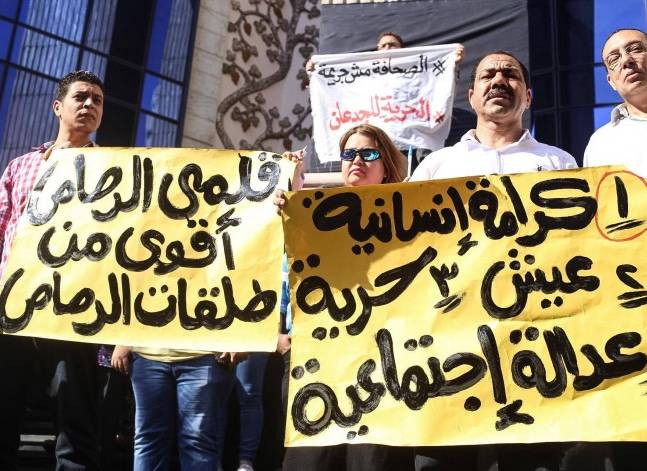 # الصحافة مش جريمة
# الحرية للجدعان
قلمي الرصاص
أقوى من
طلقات الرصاص
١ كرامة إنسانية
٢ عيش ٣ حرية
عدالة إجتماعية